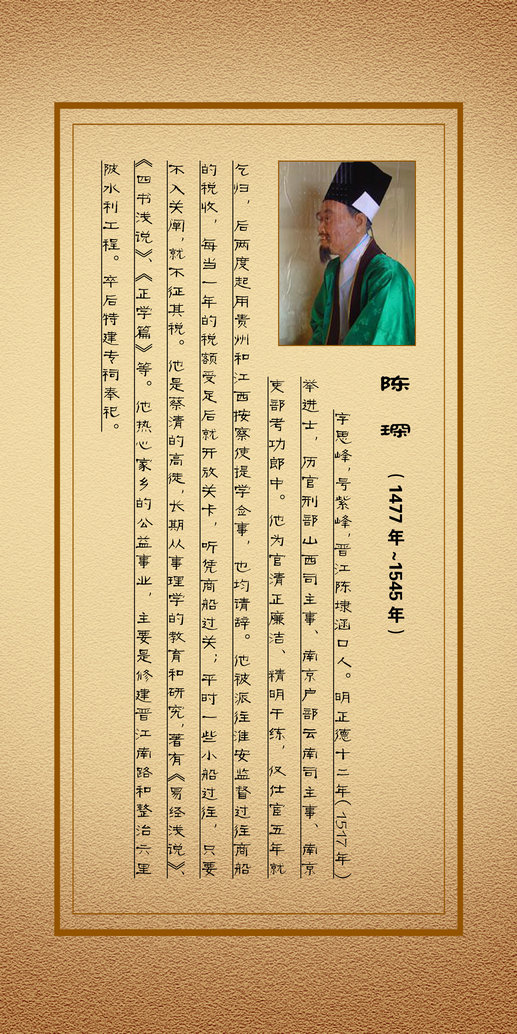 陈琛（1477年~1545年）
字思峰，号紫峰，晋江陈埭涵口人。明正德十二年（1517年）
举进士，历官刑部山西司主事、南京户部云南司主事、南京
吏部考功郎中。他为官清正廉洁、精明干练，仅仕官五年就
乞归，后两度起用贵州和江西按察使提学佥事，也均请辞。他被派往淮安监督过往商船
的税收，每当一年的税额受足后就开放关卡，听凭商船过关；平时一些小船过往，只要
不入关闸，就不征其税。他是蔡清的高徒，长期从事理学的教育和研究，著有《易经浅说》、
《四书浅说》、《正学篇》等。他热心家乡的公益事业，主要是修建晋江南路和整治六里
陂水利工程。卒后特建专祠奉祀。